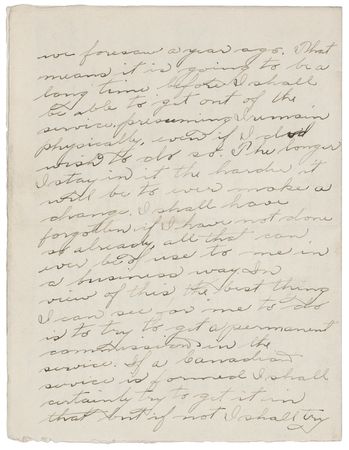 we foresaw a year ago. That
means it is going to be a
long time before I shall
be able to get out of the
service, presuming I remain
physically, even if I did
wish to do so. The longer
I stay in it the harder it
will be to ever make a
change. I shall have
forgotten, if I have not done
so already, all that can
ever be of use to me in
a business way. In
view of this the best thing
I can see for me to do
is to try to get a permanent
commission in the
service. If a Canadian
service is formed I shall
certainly try to get it in
that but if not I shall try